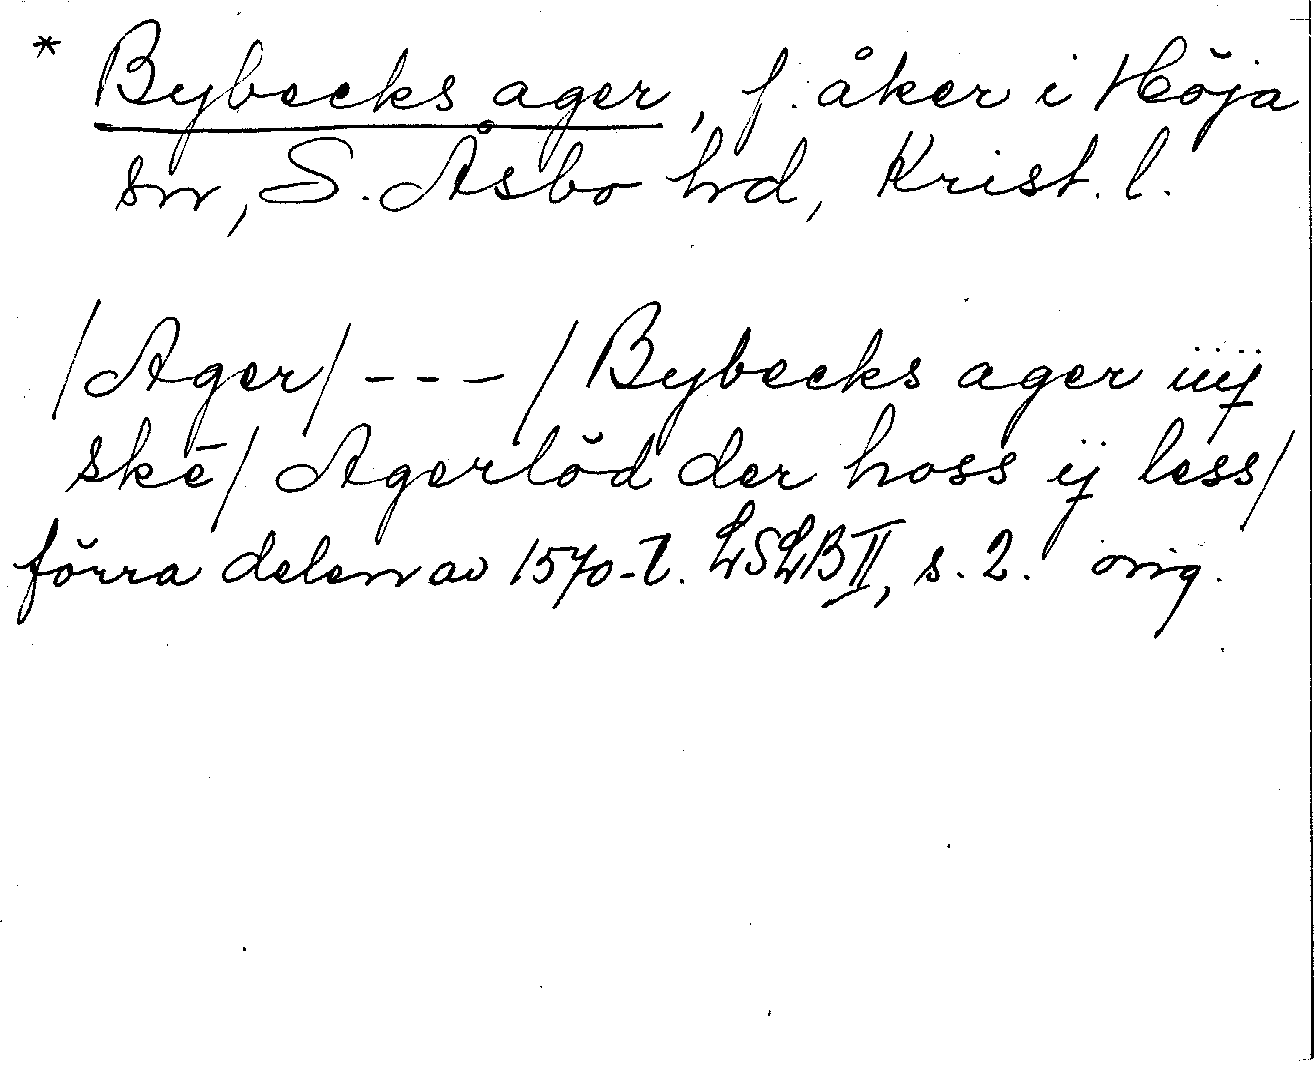 * Bybecks ager, f. åker i Höja
sn, S. Åsbo hd, Krist. l.
/Ager/ --- / Bybecks ager iiij
skē/ Agerlöd der hoss ij less/
förra delen av 1570-t. LSLB II, s. 2. orig.